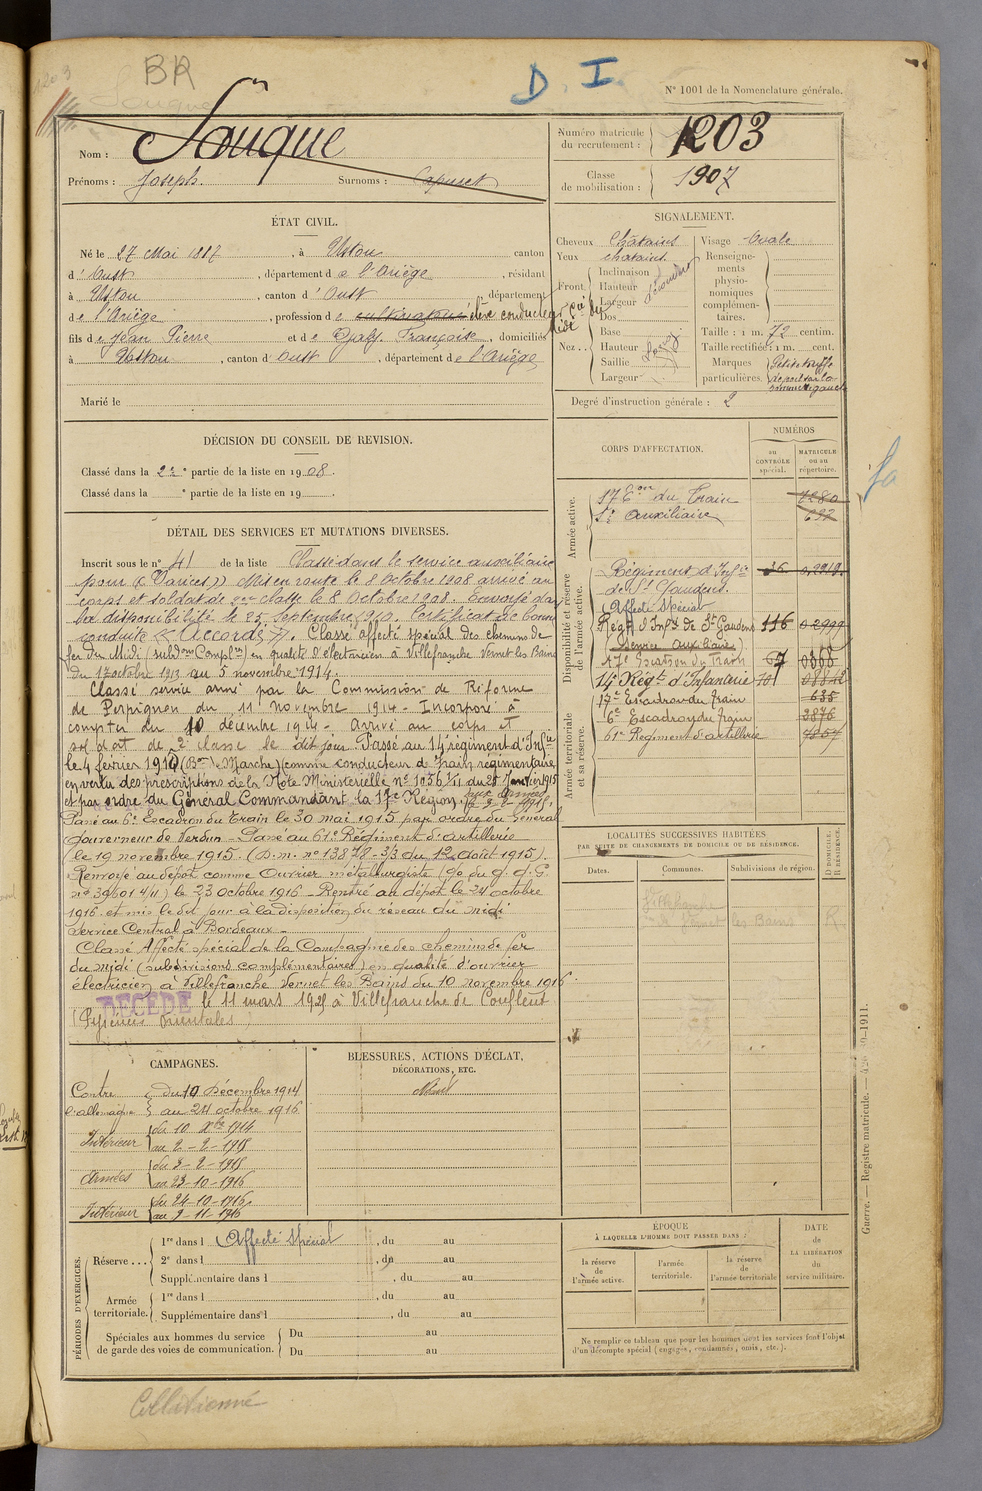 BR
D. I.
N° 1001 de la Nomenclature générale.
Nom : Souque
Prénoms : Joseph. Surnoms : Capucet
Numéro matricule du recrutement : 1203
Classe de mobilisation : 1907
ÉTAT CIVIL.
Né le 27 Mai 1887, à Ustou canton
d'Oust, département de l'Ariège, résidant
à Ustou, canton d'Oust, département
de l'Ariège, profession de cultivateur élève conducteur
fils de Jean Pierre et de Française, domiciliés
à Ustou, canton d'Oust, département de l'Ariège
Marié le
SIGNALEMENT.
Cheveux Châtains
Yeux châtains
Front
Inclinaison
Hauteur
Largeur
Nez
Dos
Base
Hauteur
Saillie
Largeur
Visage Ovale
Renseignements physionomiques complémentaires.
Taille : 1 m. 72 centim.
Taille rectifiée : 1 m. cent.
Marques particulières.
Degré d'instruction générale : 2
DÉCISION DU CONSEIL DE REVISION.
Classé dans la 2e partie de la liste en 1908.
Classé dans la e partie de la liste en 19
DÉTAIL DES SERVICES ET MUTATIONS DIVERSES.
Inscrit sous le n° 41 de la liste Classé dans le service auxiliaire
pour « Varices » Mis en route le 8 Octobre 1908 arrivé au
corps et soldat de 2me classe le 8 Octobre 1908. Envoyé dans
la disponibilité le 25 Septembre 1910. Certificat de bonne
conduite « Accordé ». Classé affecté spécial des chemins de
fer du Midi (subdons Complres) en qualité d'électricien à Villefranche Vernet les Bains
du 17 octobre 1913 au 5 novembre 1914.
Classé service armé par la Commission de Réforme
de Perpignan du 11 Novembre 1914 - Incorporé à
compter du 10 décembre 1914 - Arrivé au corps et
soldat de 2e classe le dit jour. Passé au 14e régiment d'Infie
le 4 février 1915 (Bon de Marche) (comme conducteur de train régimentaire
en vertu des prescriptions de la Note Ministérielle n° 1036 1/11 du 25 Janvier 1915
et par ordre du Général Commandant la 17e Région.
Passé au 6e Escadron du Train le 30 mai 1915 par ordre du Général
gouverneur de Verdun - Passé au 61e Régiment d'artillerie
(le 19 novembre 1915. (D.m. n° 13878-3/3 du 12 août 1915).
Renvoyé au dépôt comme Ouvrier métallurgiste (ge du g.q.G.
n° 39601 4/11) le 23 octobre 1916 - Rentré au dépôt le 24 octobre
1916 et mis le dit jour à la disposition du réseau du midi
Service Central à Bordeaux -
Classé Affecté spécial de la Compagnie des chemins de fer
du midi (subdivisions complémentaires) en qualité d'ouvrier
électricien à Villefranche Vernet les Bains du 10 novembre 1916
DÉCÉDÉ le 11 mars 1925 à Villefranche de Conflent
(Pyrénées Orientales)
CORPS D'AFFECTATION.
NUMÉROS
au CONTRÔLE spécial.
MATRICULE ou au répertoire.
Armée active.
17e Eon du Train 7280
Sn Auxiliaire 632
Disponibilité et réserve de l'armée active.
Régiment d'Infie
de St Gaudens.
Affecté Spécial
Régt d'Infie de St Gaudens 136 02999
(Service Auxiliaire)
17e Escadron du Train 67 0368
14e Régt d'Infanterie
17e Escadron du train 635
6e Escadron du train 3876
61e Régiment d'artillerie 7867
Armée territoriale et sa réserve.
LOCALITÉS SUCCESSIVES HABITÉES
PAR SUITE DE CHANGEMENTS DE DOMICILE OU DE RÉSIDENCE.
Dates.
Communes.
Subdivisions de région.
D DOMICILE. R RÉSIDENCE.
Villefranche
Vernet les Bains R
CAMPAGNES.
Contre l'allemagne du 10 Décembre 1914
au 24 octobre 1916
Intérieur du 10 Xbre 1914
au 2-2-1915
Armées du 3-2-1915
au 23-10-1916
Intérieur du 24-10-1916
au 9-11-1916
BLESSURES, ACTIONS D'ÉCLAT,
DÉCORATIONS, ETC.
Néant
PÉRIODES D'EXERCICES.
Réserve ...
1re dans l Affecté Spécial, du au
2e dans l, du au
Supplémentaire dans l, du au
Armée territoriale.
1re dans l, du au
Supplémentaire dans l, du au
Spéciales aux hommes du service de garde des voies de communication.
Du au
Du au
ÉPOQUE
À LAQUELLE L'HOMME DOIT PASSER DANS :
la réserve de l'armée active.
l'armée territoriale.
la réserve de l'armée territoriale
DATE de LA LIBÉRATION du service militaire.
Ne remplir ce tableau que pour les hommes dont les services font l'objet
d'un décompte spécial (engagés, condamnés, omis, etc.).
Collationné